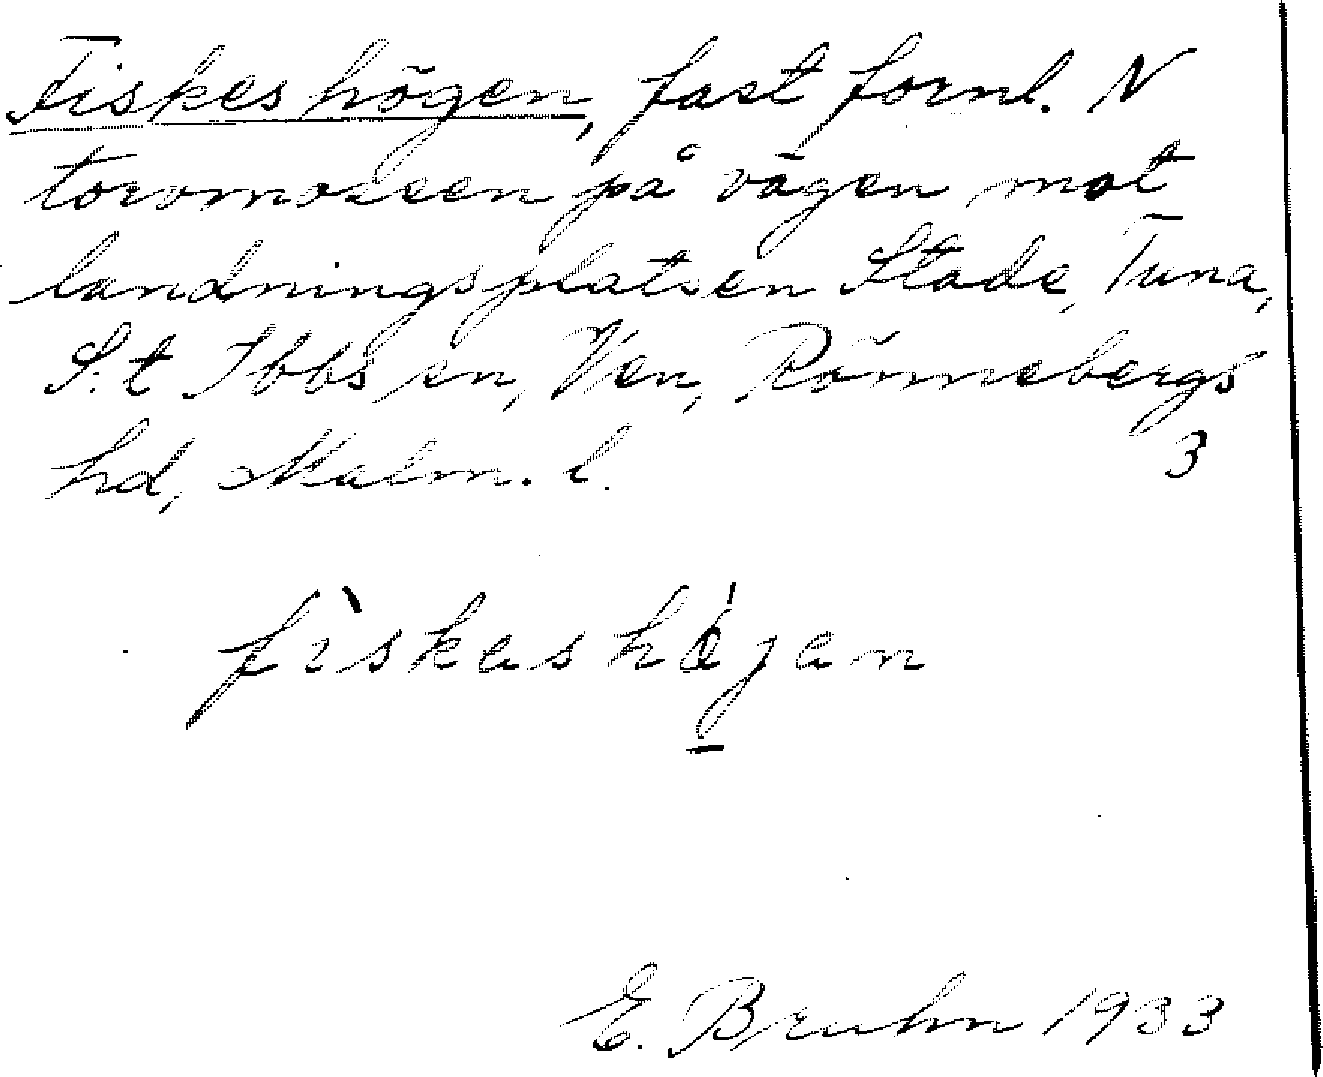 Fiskeshögen, fast fornl. N
torvmossen på vägen mot
landningsplatsen Stade, Tuna,
S:t Ibbs sn, Ven, Rönnebergs
hd, Malm. l. 3
E. Bruhn 1933